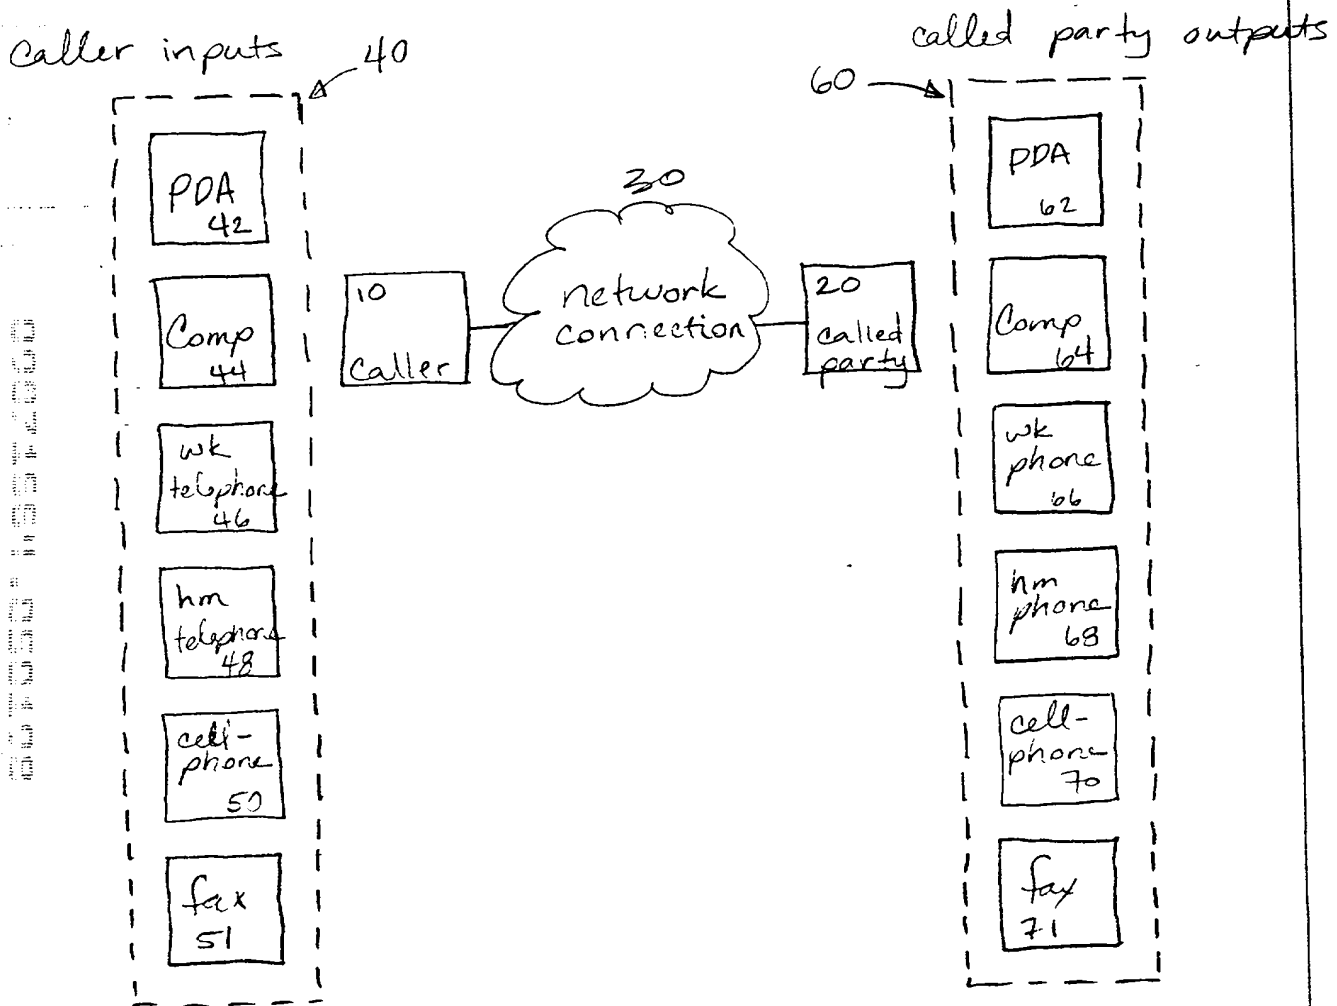 caller inputs
40
PDA
42
Comp
44
wk
telephone
46
hm
telephone
48
cell-
phone
50
fax
51
10
caller
30
network
connection
20
called
party
called party outputs
60
PDA
62
Comp
64
wk
phone
66
hm
phone
68
cell-
phone
70
fax
71